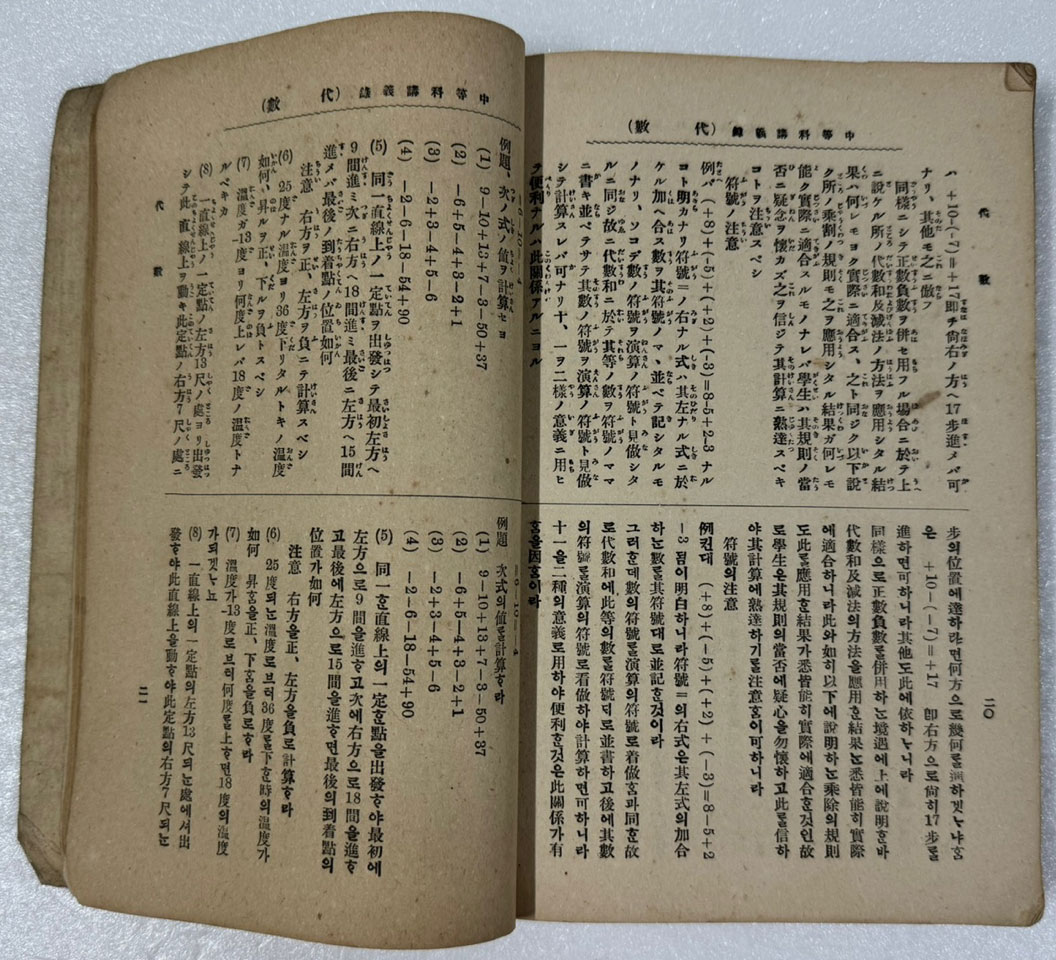 中等科講義錄（代數）
代數
二〇
ハ +10-(-7)=+17卽チ尙右ノ方ヘ17步進メバ可
ナリ、其他モ之ニ倣フ
同樣ニシテ正數負數ヲ併セ用フル場合ニ於テ上
ニ說ケル所ノ代數和及減法ノ方法ヲ應用シタル結
果ハ何レモヨク實際ニ適合ス、之ト同ジク以下說
ク所ノ乘割ノ規則モ之ヲ應用シタル結果ガ何レモ
能ク實際ニ適合スルモノナレバ學生ハ其規則ノ當
否ニ疑念ヲ懷カズ之ヲ信ジテ其計算ニ熟達スベキ
コトヲ注意スベシ
符號ノ注意
例バ (+8)+(-5)+(+2)+(-3)=8-5+2-3 ナル
コト明カナリ符號=ノ右ナル式ハ其左ナル式ニ於
ケル加ヘ合ス數ヲ其符號ノマヽ並ベテ記シタルモ
ノナリ、ソコデ數ノ符號ヲ演算ノ符號ト見做シタ
ルニ同ジ故ニ代數和ニ於テ其等ノ數ヲ符號ノママ
ニ書キ並ベサテ其數ノ符號ヲ演算ノ符號ト見做
シテ計算スレバ可ナリ十、一ヲ二樣ノ意義ニ用ヒ
テ便利ナルハ此關係アルニヨル
步의位置에達하랴면何方으로幾何를
進하면可하니라其他도此에依하ᄂᆞ니라
은 +10-(-7)=+17 卽右方으로尙히17步를
同樣으로正數負數를併用하ᄂᆞᆫ境遇에上에說明ᄒᆞᆫ바
代數和及減法의方法을應用ᄒᆞᆫ結果ᄂᆞᆫ悉皆能히實際
에適合하니라此와如히以下에說明하ᄂᆞᆫ乘除의規則
도此를應用ᄒᆞᆫ結果가悉皆能히實際에適合ᄒᆞᆫ것인故
로學生은其規則의當否에疑心을勿懷하고此를信하
야其計算에熟達하기를注意ᄒᆞᆷ이可하니라
符號의注意
例컨대 (+8)+(-5)+(+2)+(-3)=8-5+2
-3 됨이明白하니라符號=의右式은其左式의加合
하ᄂᆞᆫ數를其符號대로並記ᄒᆞᆫ것이라
그러ᄒᆞᆫ데數의符號를演算의符號로看做ᄒᆞᆷ과同ᄒᆞᆫ故
로代數和에此等의數를符號ᄃᆡ로並書하고後에其數
의符號를演算의符號로看做하야計算하면可하니라
十一을二種의意義로用하야便利ᄒᆞᆫ것은此關係가有
ᄒᆞᆷ을因ᄒᆞᆷ이라
中等科講義錄（代數）
例題、次ノ式ノ値ヲ計算セヨ
(1) 9-10+13+7-3-50+37
(2) -6+5-4+3-2+1
(3) -2+3-4+5-6
(4) -2-6-18-54+90
(5) 同一直線上ノ一定點ヲ出發シテ最初左方ヘ
9間進ミ次ニ右方ヘ18間進ミ最後ニ左方ヘ15間
進メバ最後ノ到着點ノ位置如何
注意 右方ヲ正、左方ヲ負ニテ計算スベシ
(6) 25度ナル溫度ヨリ36度下リタルトキノ溫度
如何、昇ルヲ正、下ルヲ負トスベシ
(7) 溫度ガ-13度ヨリ何度上レバ18度ノ溫度トナ
ルベキカ
(8) 一直線上ノ一定點ノ左方13尺ノ處ヨリ出發
シテ此直線上ヲ動キ此定點ノ右方7尺ノ處ニ
例題 次式의値를計算ᄒᆞ라
(1) 9-10+13+7-3-50+37
(2) -6+5-4+3-2+1
(3) -2+3-4+5-6
(4) -2-6-18-54+90
(5) 同一ᄒᆞᆫ直線上의一定ᄒᆞᆫ點을出發ᄒᆞ야最初에
左方으로9間을進ᄒᆞ고次에右方으로18間을進ᄒᆞ
고最後에左方으로15間을進ᄒᆞ면最後의到着點의
位置가如何
注意 右方을正、左方을負로計算ᄒᆞ라
(6) 25度되ᄂᆞᆫ溫度로브터36度를下ᄒᆞᆫ時의溫度가
如何 昇ᄒᆞᆷ을正、下ᄒᆞᆷ을負로ᄒᆞ라
(7) 溫度가-13度로브터何度를上ᄒᆞ면18度의溫度
가되겟ᄂᆞ뇨
(8) 一直線上의一定點의左方13尺되ᄂᆞᆫ處에셔出
發ᄒᆞ야此直線上을動ᄒᆞ야此定點의右方7尺되ᄂᆞᆫ
代數
二一